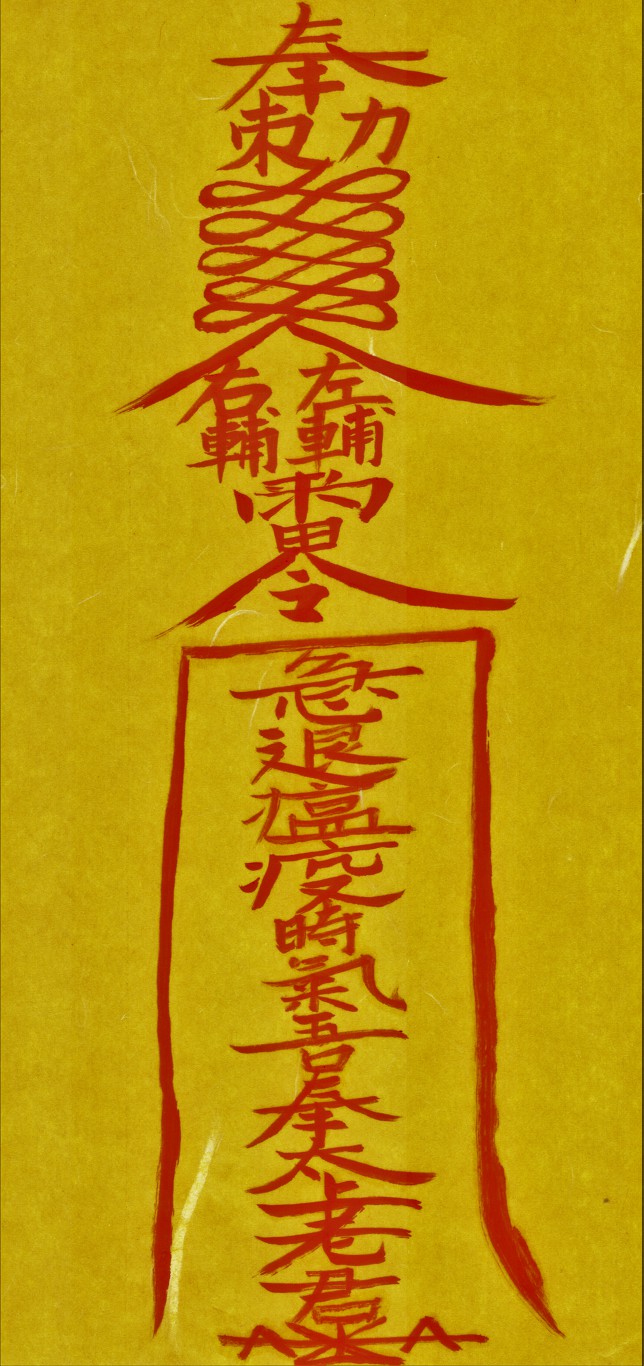 奉勅
左輔
右輔
令
急退瘟疫時氣吾奉太上老君